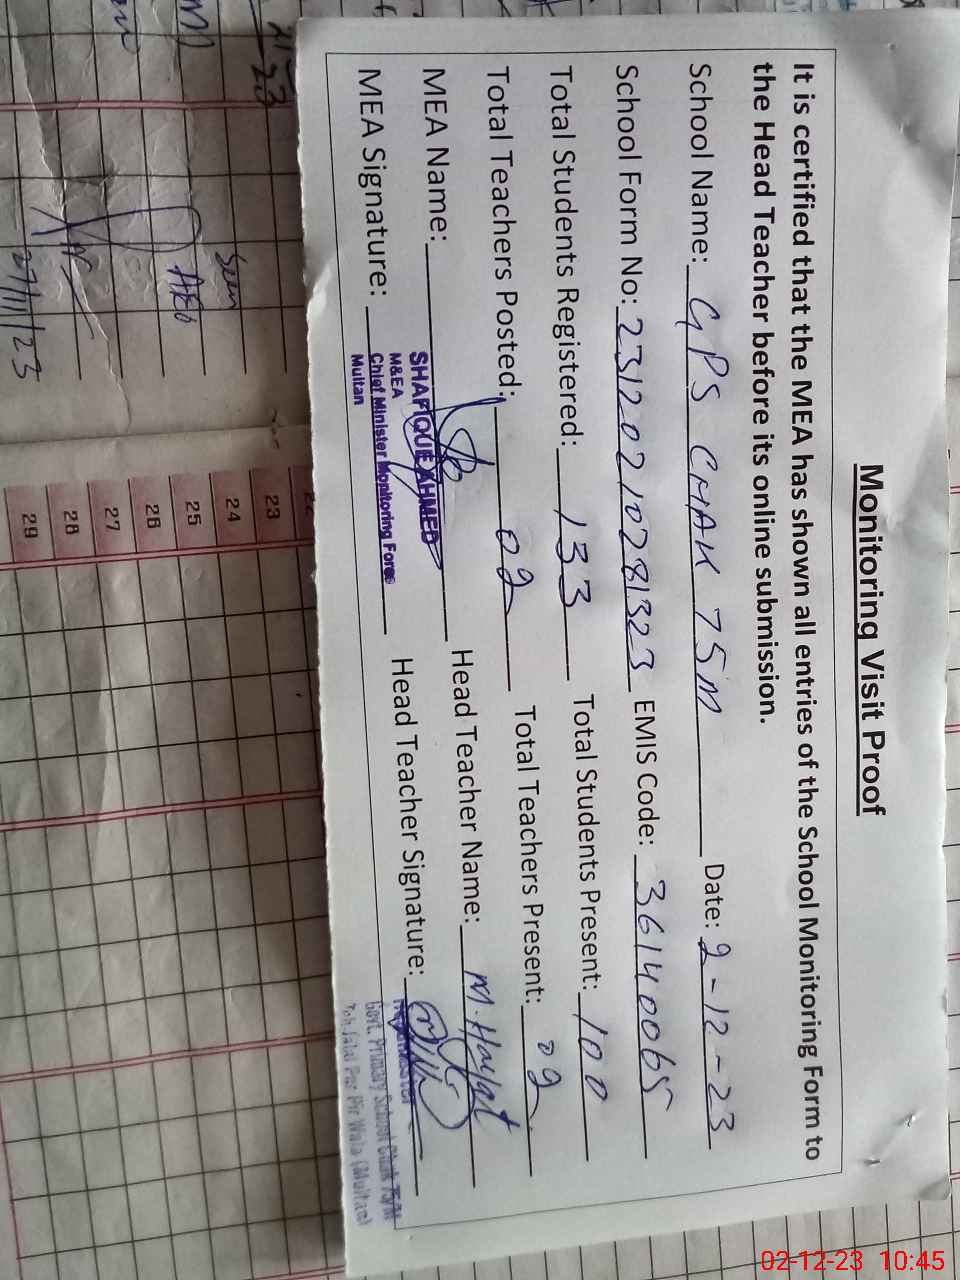 Monitoring Visit Proof
It is certified that the MEA has shown all entries of the School Monitoring Form to
the Head Teacher before its online submission.
School Name: GPS CHAK 75M Date: 2-12-23
School Form No: 23120210281323 EMIS Code: 36140065
Total Students Registered: 133 Total Students Present: 100
Total Teachers Posted: 02 Total Teachers Present: 02
MEA Name: SHAFIQUE AHMED Head Teacher Name: M. Hayat
M&EA
MEA Signature: Chief Minister Monitoring Force Head Teacher Signature:
Multan
Headmaster
Govt. Primary School Chak 75/M
Teh. Jalal Pur Pir Wala (Multan)
Seen
AEO
27/11/23
23
24
25
26
27
28
29
02-12-23 10:45